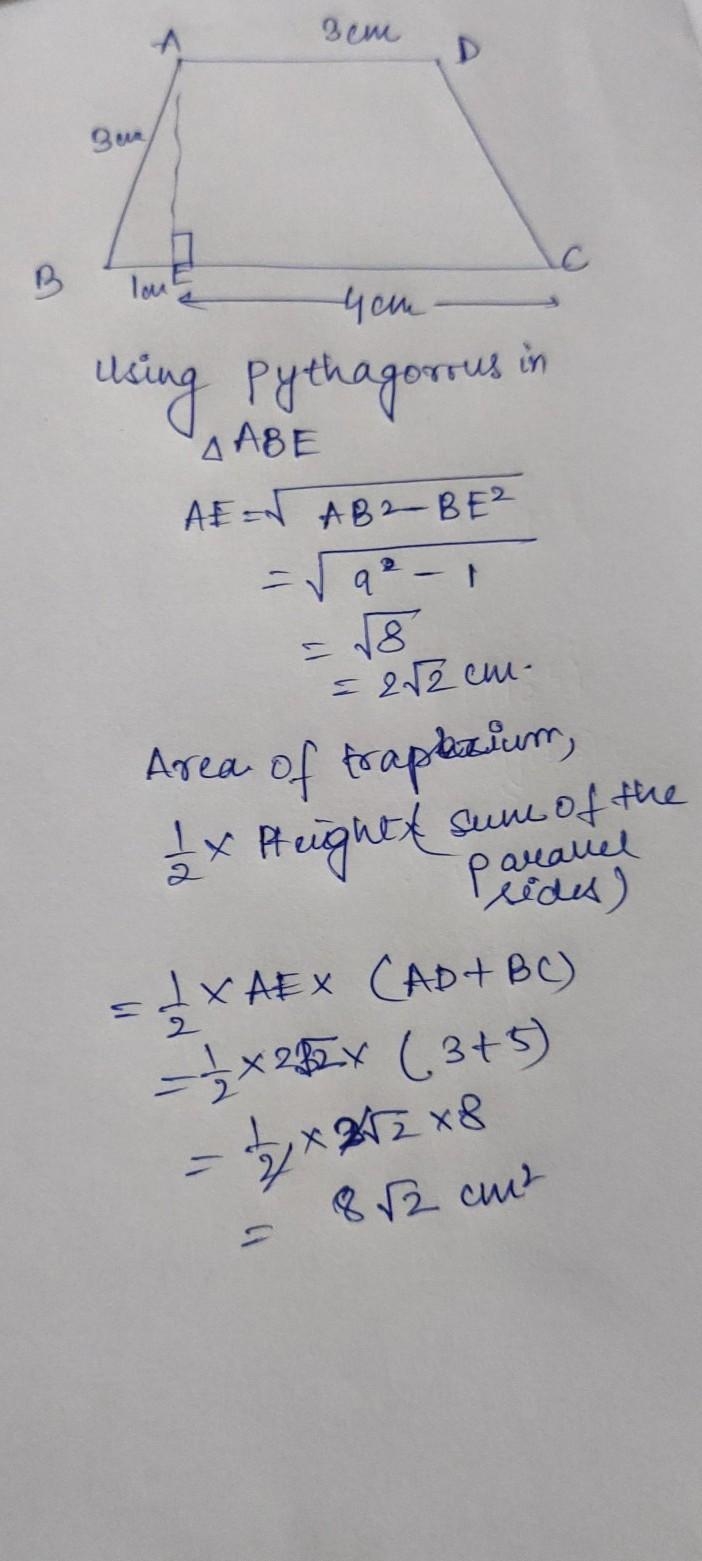 A 3cm D
3cm
B 1cm E C
4cm
Using Pythagorrus in
△ ABE
AE = √AB2 - BE²
= √9² - 1
= √8
= 2√2 cm.
Area of trapezium,
1/2 × Height × (sum of the
parallel
sides)
= 1/2 × AE × (AD + BC)
= 1/2 × 2√2 × (3+5)
= 1/2 × 2√2 × 8
= 8√2 cm²